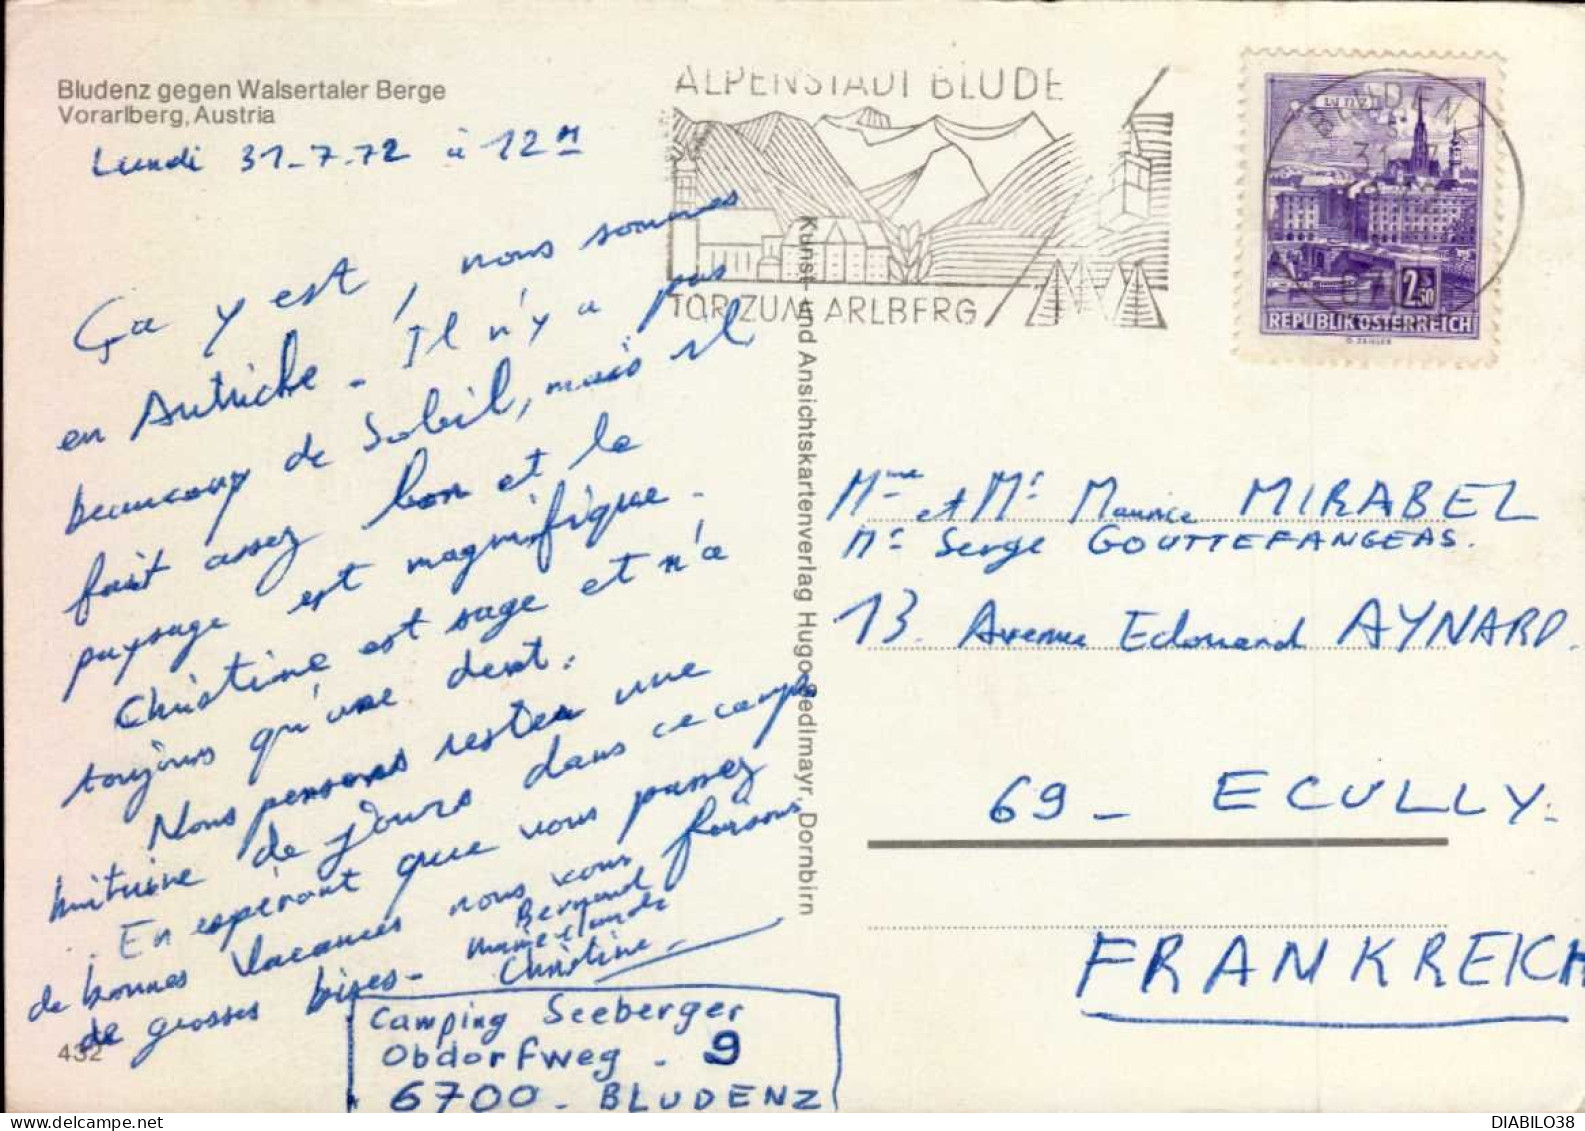 Bludenz gegen Walsertaler Berge
Vorarlberg, Austria
Lundi 31-7-72 à 12H
Ça y est, nous sommes
en Autriche - Il n'y a pas
beaucoup de Soleil, mais il
fait assez bon et le
paysage est magnifique.
Christine est sage et n'a
toujours qu'une dent.
Nous pensons rester une
huitaine de jours dans ce camp
En espérant que vous passez
de bonnes vacances nous vous faisons
de grosses bises-
Bernard
Christine
Camping Seeberger
Obdorfweg - 9
6700 - BLUDENZ
432
Kunst- und Ansichtskartenverlag Hugo Sedlmayr, Dornbirn
ALPENSTADT BLUDE
TOR ZUM ARLBERG
BLUDENZ
31. 7.
2.50
REPUBLIK ÖSTERREICH
Mme et Mr Maurice MIRABEL
Mr Serge GOUTTEFANGEAS.
13. Avenue Edouard AYNARD.
69 - ECULLY.
FRANKREICH
DIABILO38